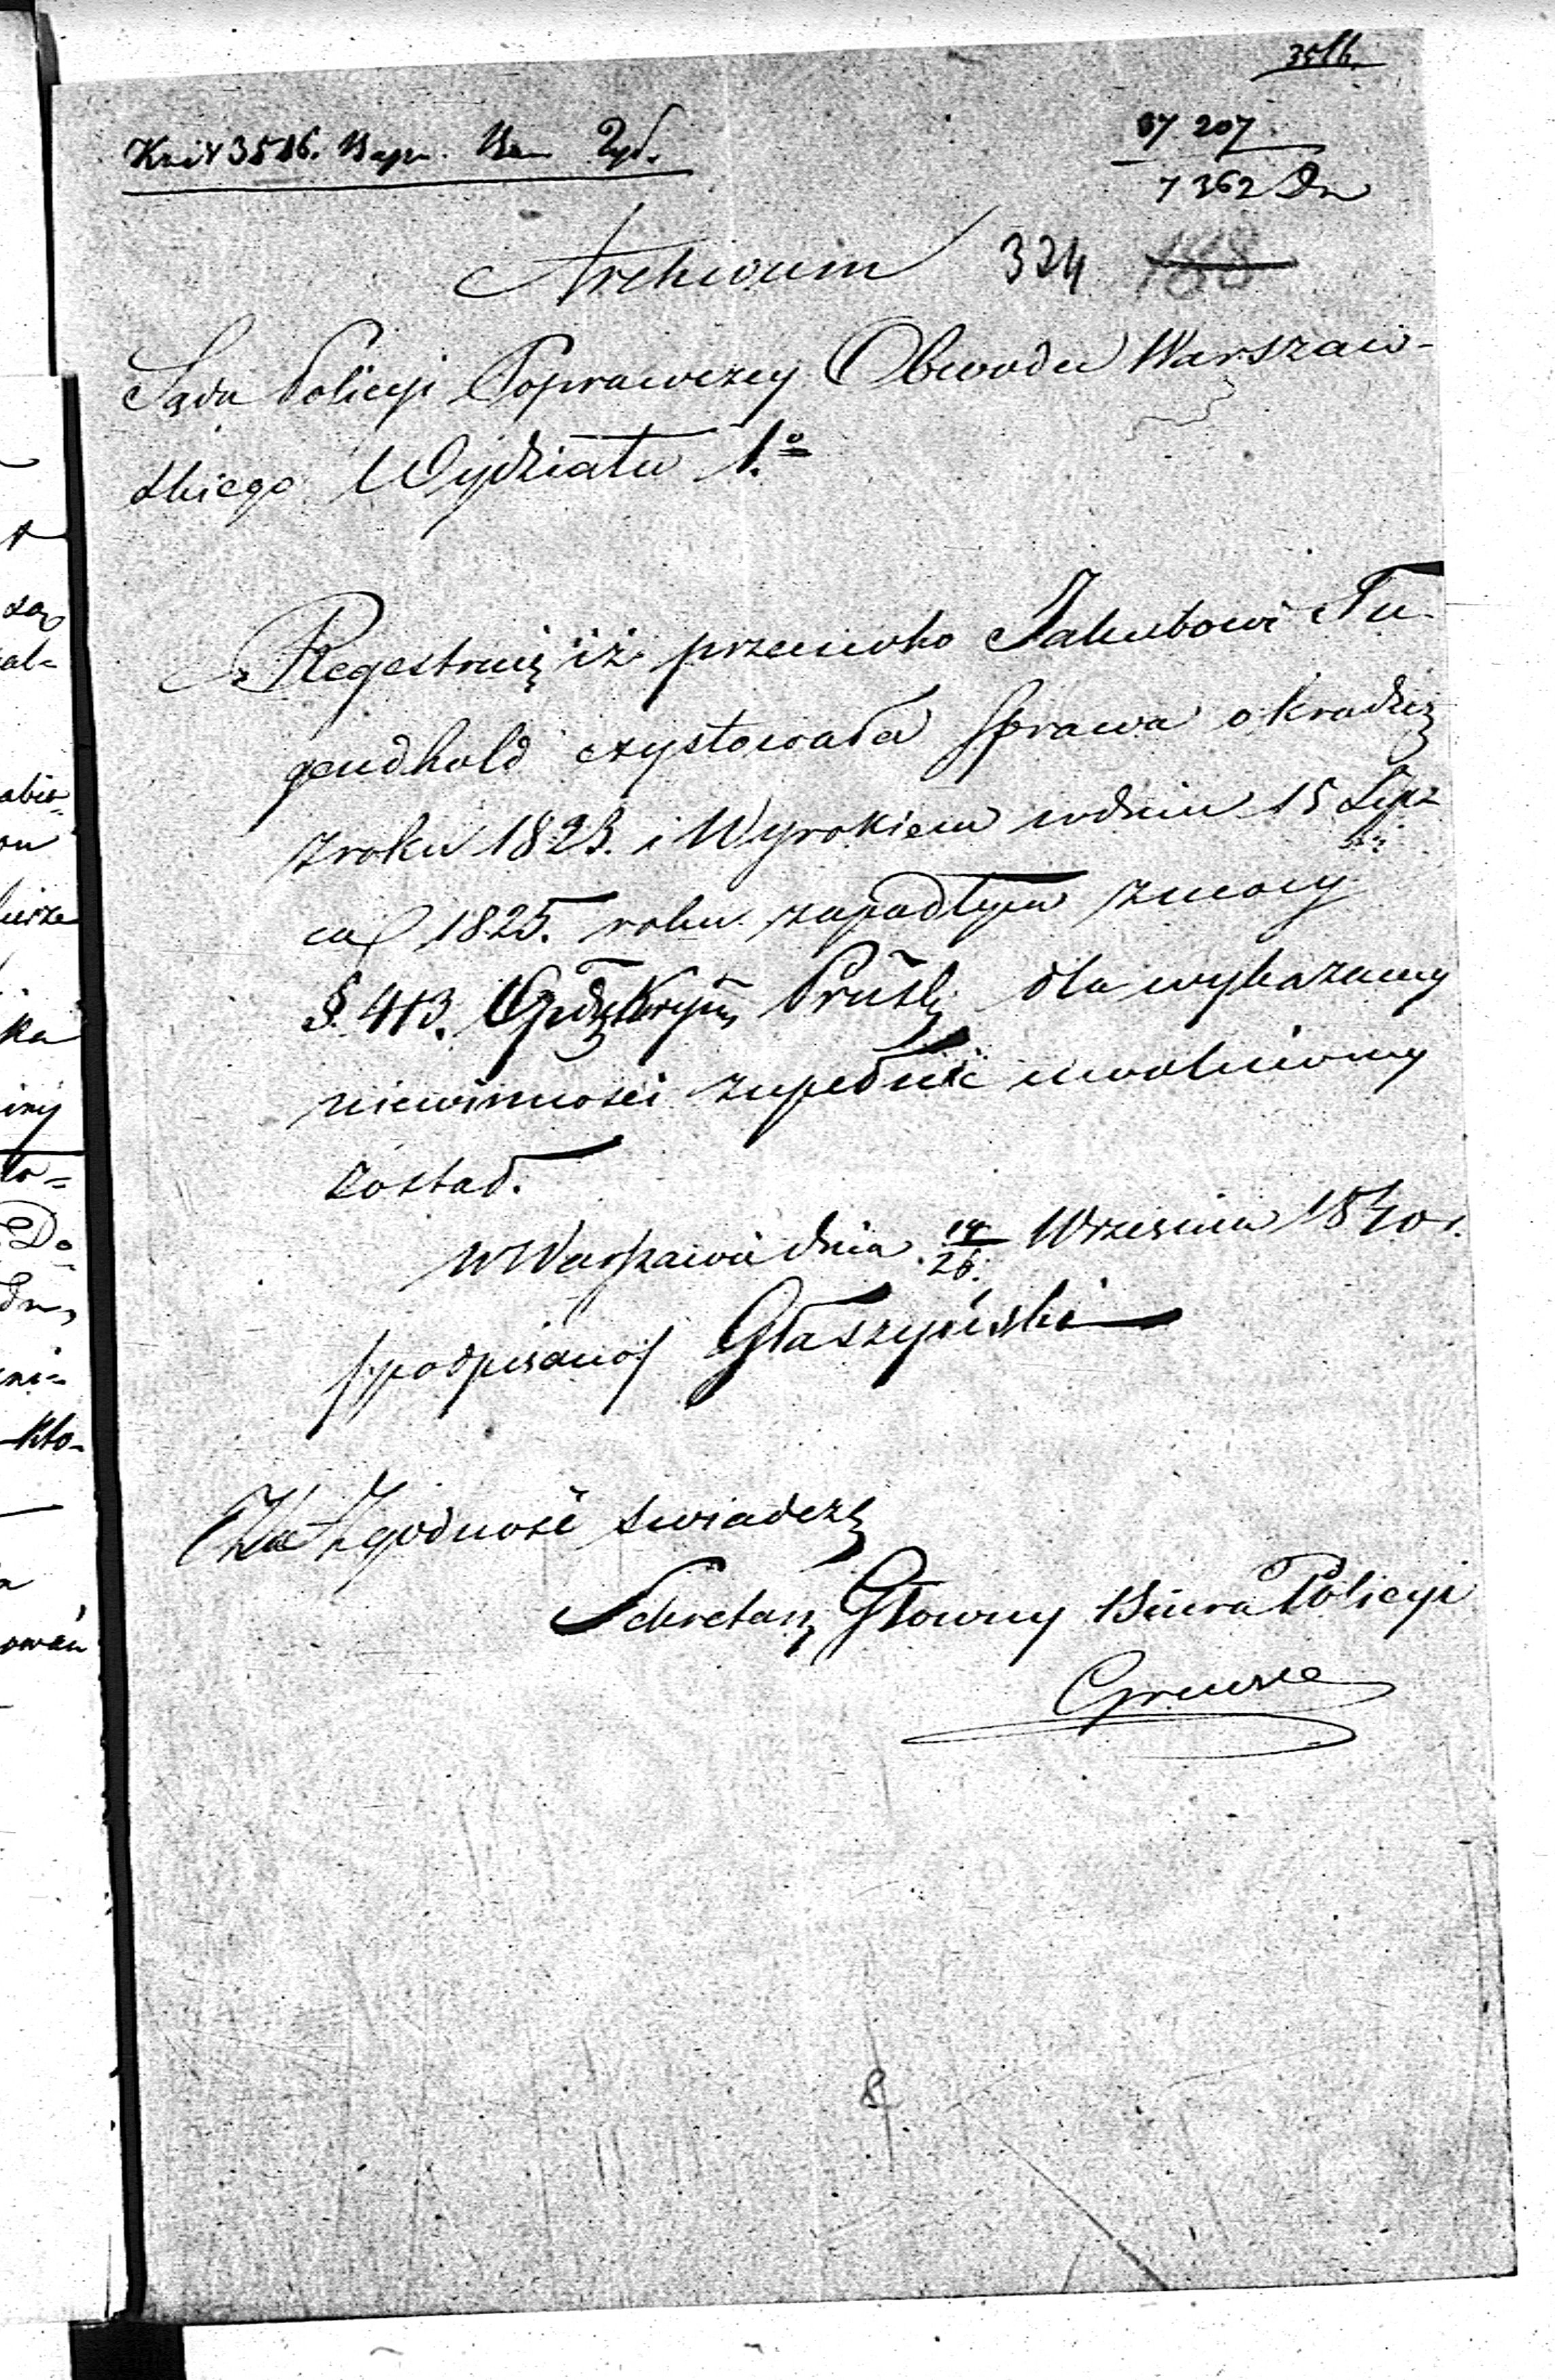 3516.
67 207
7362
324 188
Archiwum
Sądu Policyi Poprawczey Obwodu Warszaw-
skiego Wydziału 1.º
Regestruię iż przeciwko Jakubowi Tu-
gendhold exystowała sprawa o kradzież
z roku 1823. i Wyrokiem w dniu 15 Lip-
ca 1825. roku zapadłym z mocy
§. 413. Ord. Krym. Prusk. dla wykazaney
niewinności zupełnie uwolniony
został.
w Warszawie dnia 14/26. Września 1840 r.
/podpisano/ Głaszyński
Za Zgodność świadczę
Sekretarz Głowny Biura Policyi
8